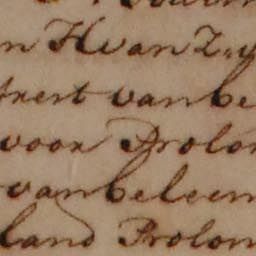 n H van Z
trert van be
voor Prolon
van beleen
land Prolon